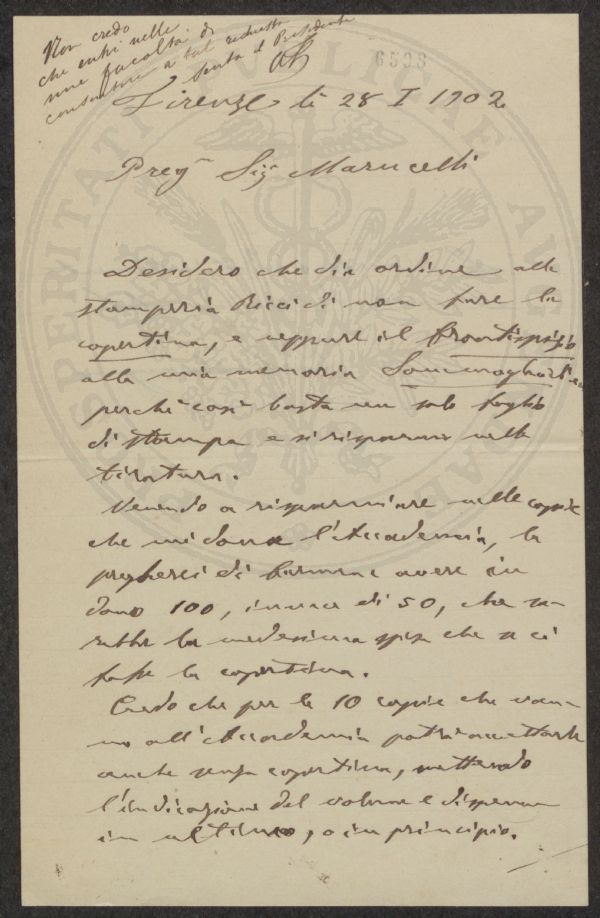 Non credo
che entri nelle
mie facoltà di
consentire a tal richiesta
Senta il Presidente
6598
PROSPERITATI PUBLICAE AUGENDAE
Firenze lì 28 I 1902
Preg Sig Marucelli
Desidero che dia ordine alla
stamperia Ricci di non fare la
copertina, e neppure il frontispizio
alla mia memoria
perchè così basta un solo foglio
di stampa e si risparmia nella
tiratura.
Venendo a risparmiare nelle copie
che mi dona l'Accademia, la
pregherei di farmene avere in
dono 100, invece di 50, che sa-
rebbe la medesima spesa che se ci
fosse la copertina.
Credo che per le 10 copie che van-
no all'Accademia potrà accettarle
anche senza copertina, mettendo
l'indicazione del volume e dispensa
in ultimo, o in principio.